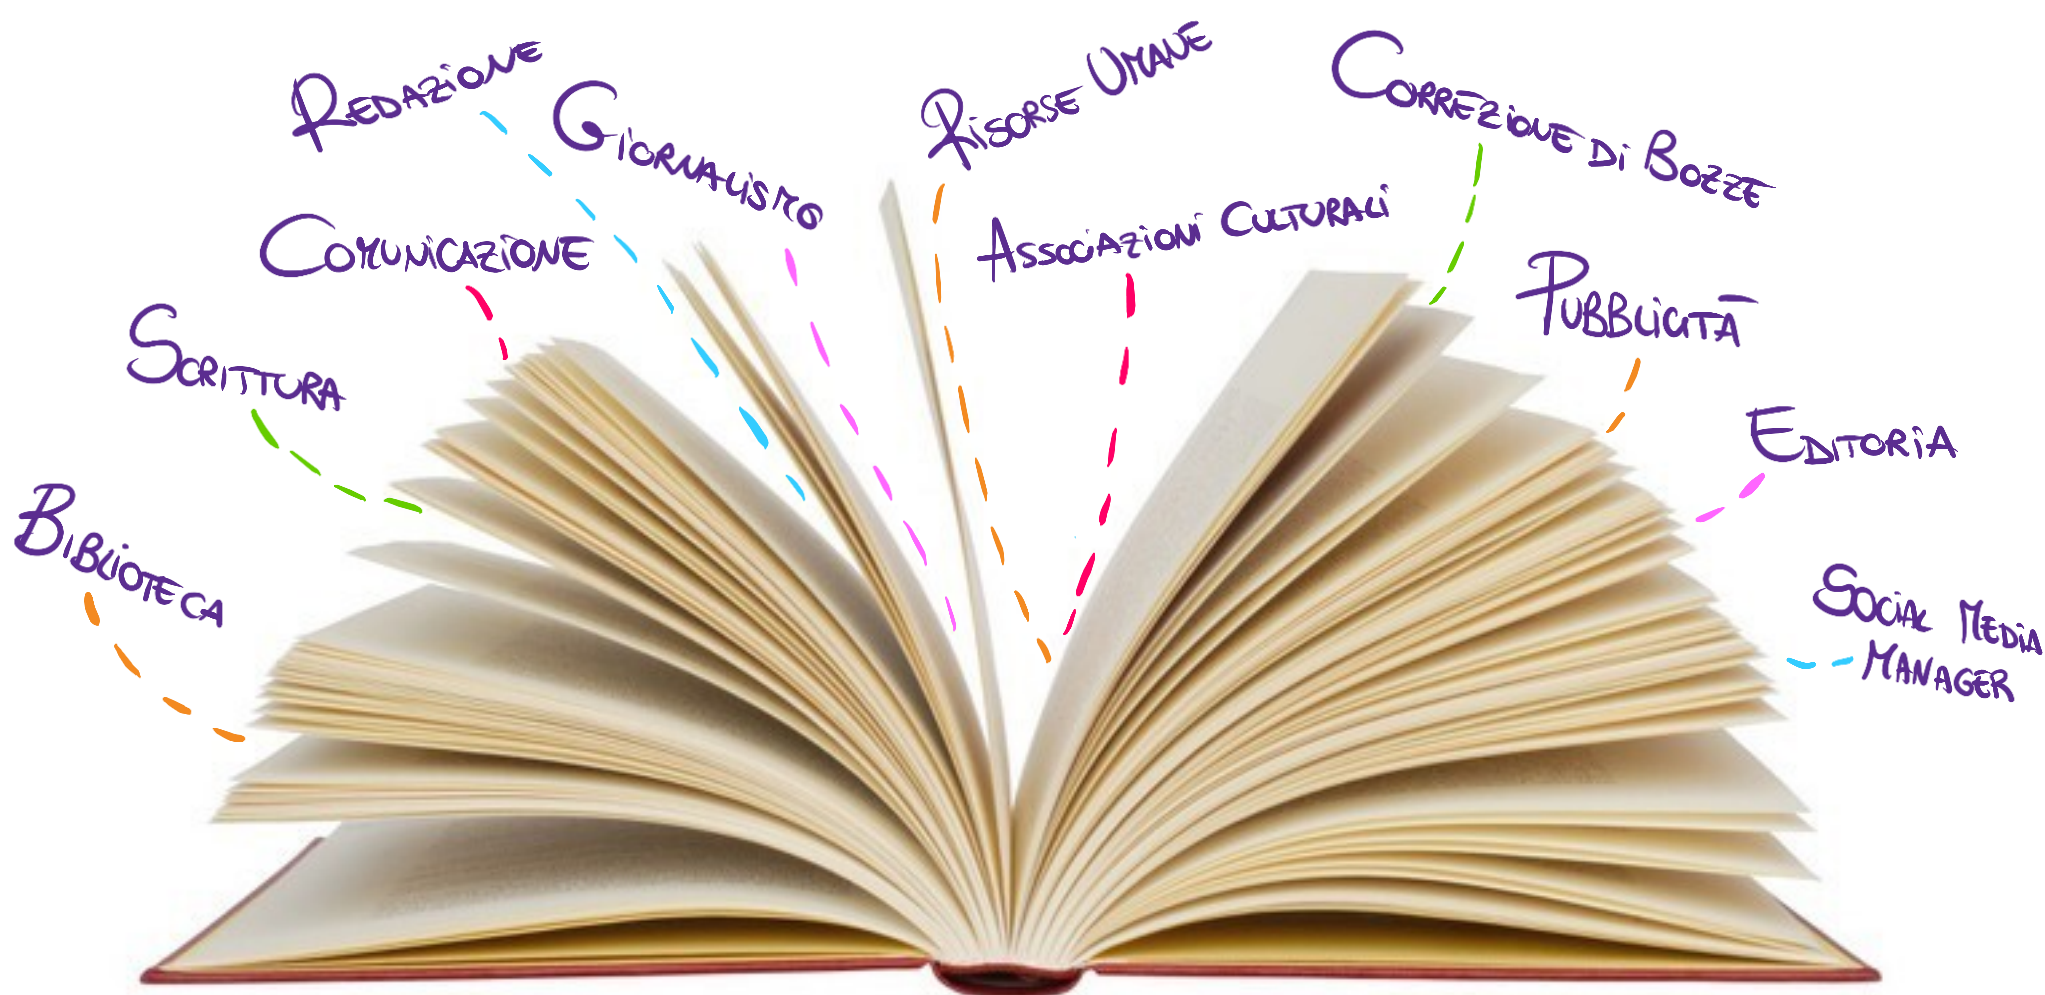 Redazione
Giornalismo
Risorse Umane
Correzione di Bozze
Comunicazione
Associazioni Culturali
Pubblicità
Scrittura
Editoria
Biblioteca
Social Media
Manager